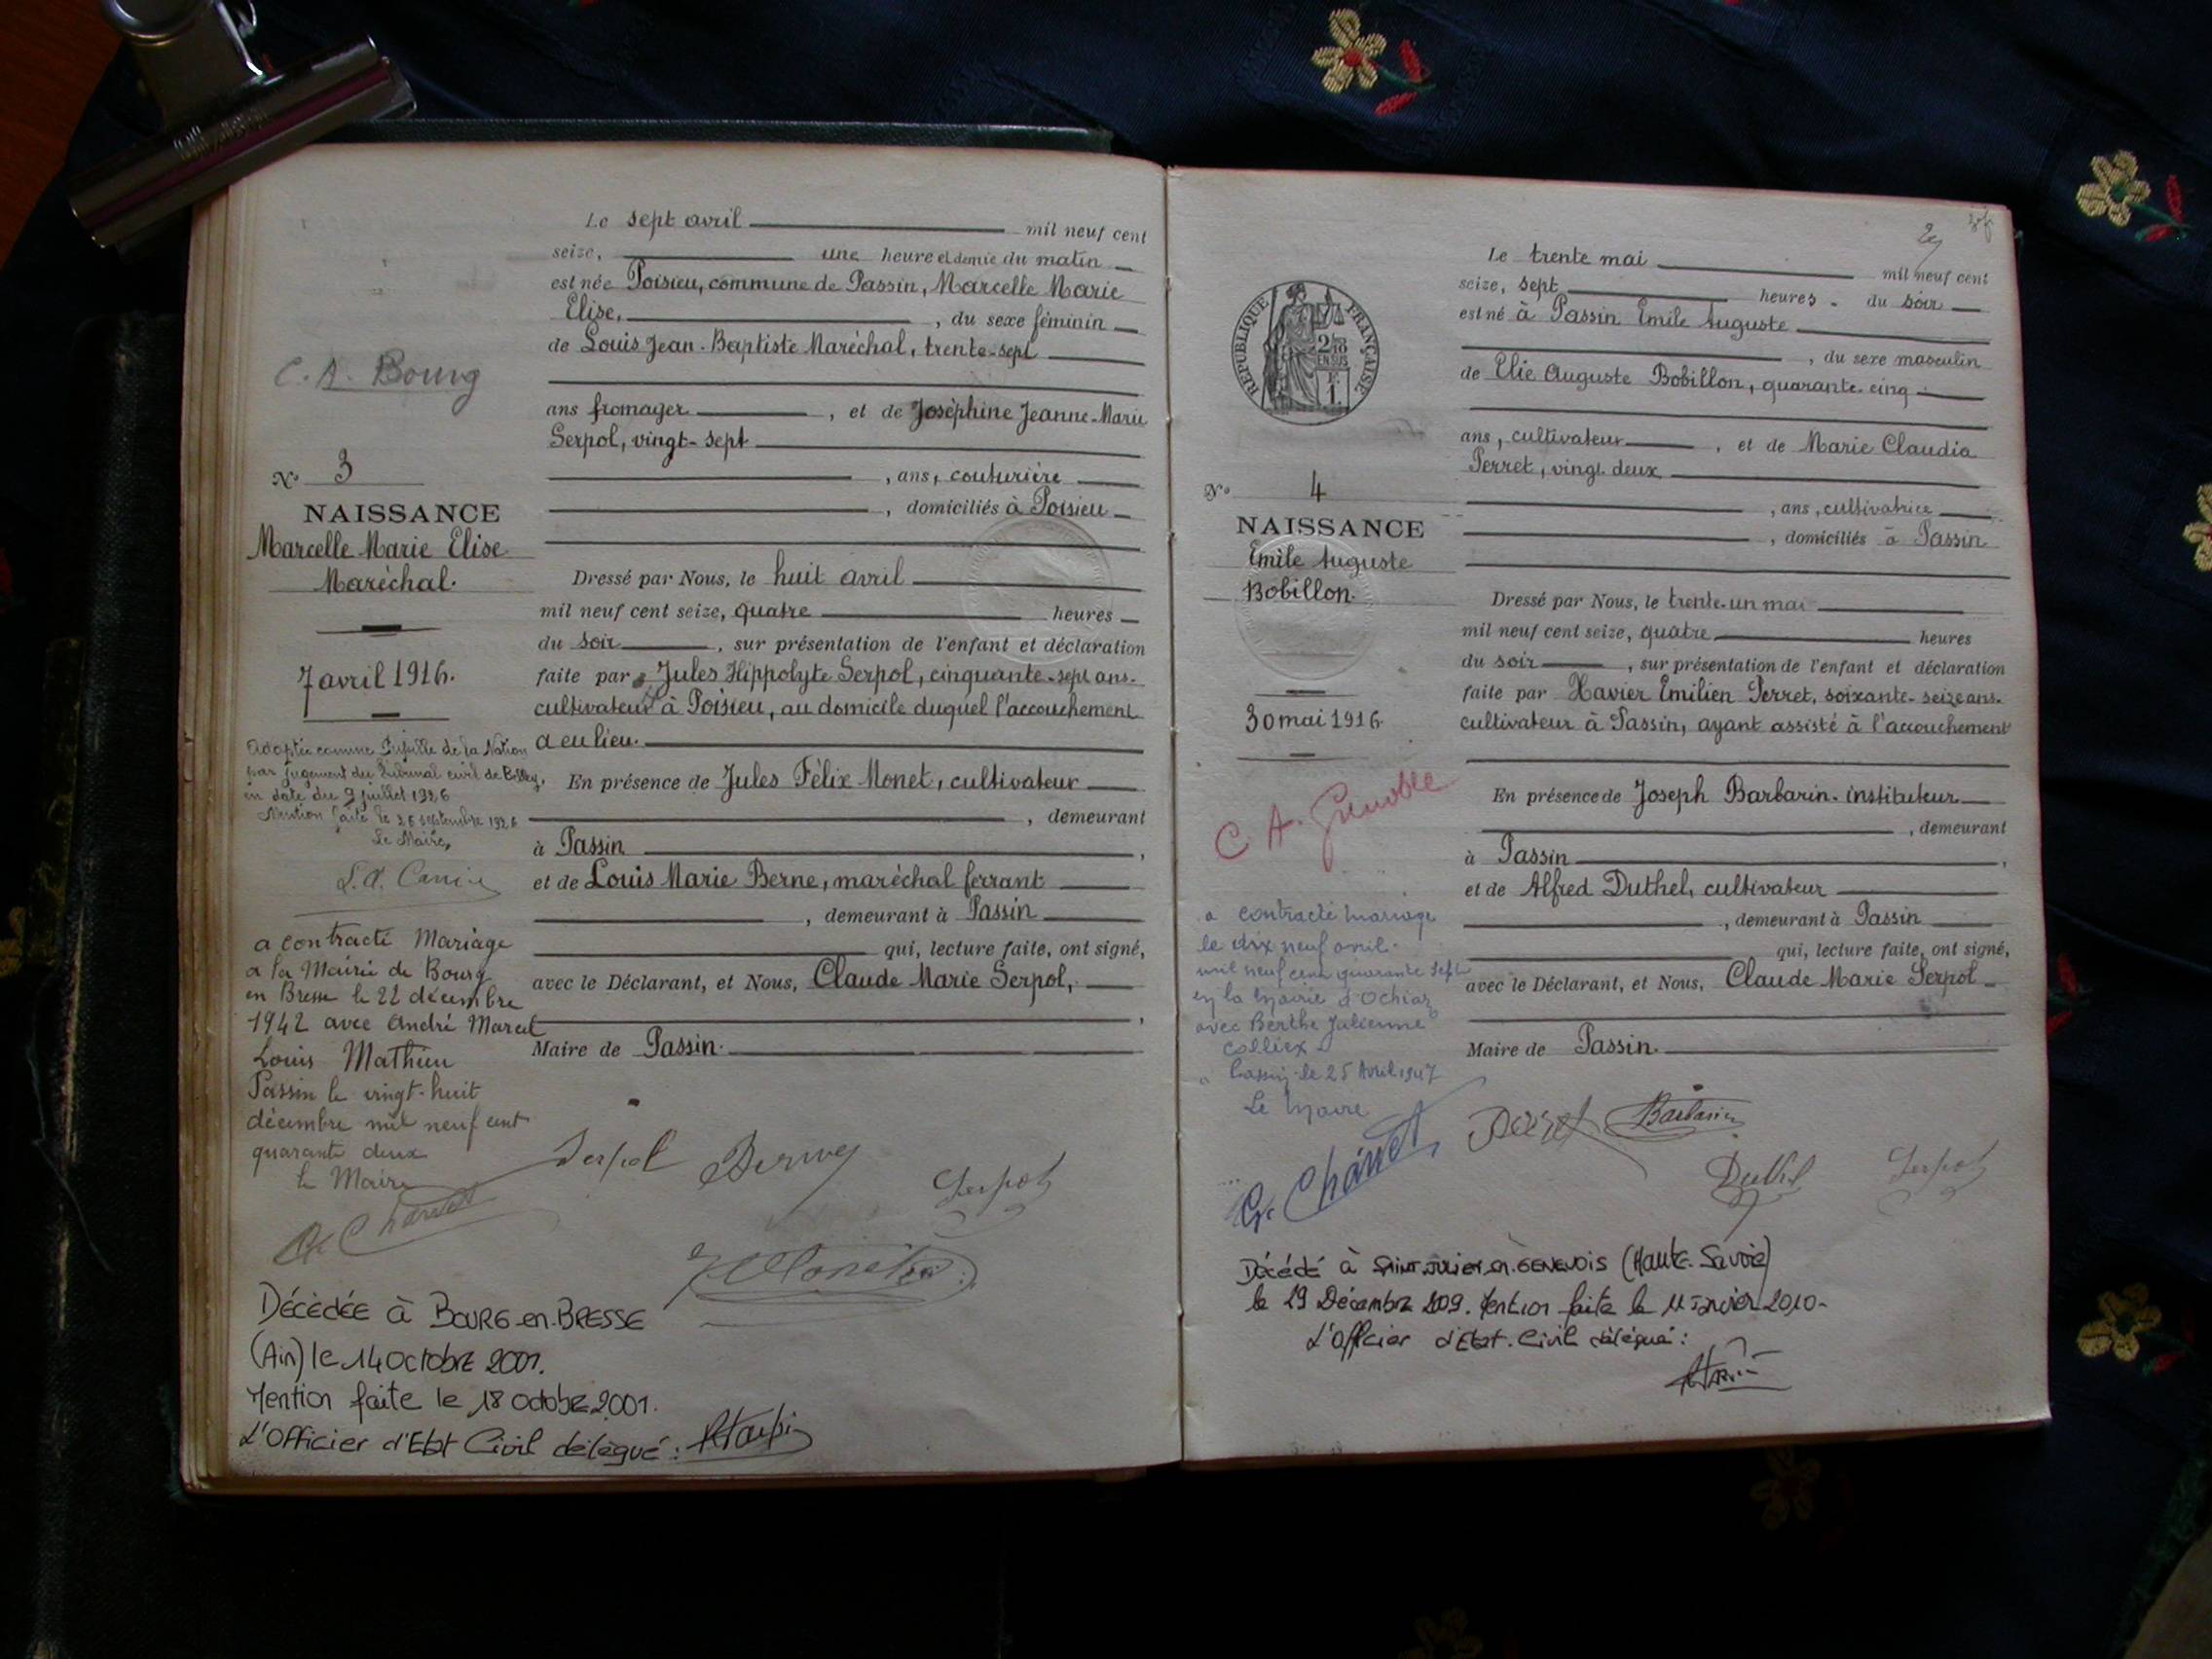 C. A. Bourg
N° 3
NAISSANCE
Marcelle Marie Elise
Maréchal.
7 avril 1916.
Adoptée comme Pupille de la Nation
par jugement du Tribunal civil de Belley,
en date du 9 juillet 1926
Mention faite le 26 septembre 1926
Le Maire,
a contracté Mariage
a la Mairie de Bourg
en Bresse le 22 décembre
1942 avec André Marcel
Louis Mathieu
Passin le vingt-huit
décembre mil neuf cent
quarante deux
le Maire
Le sept avril mil neuf cent
seize, une heure et demie du matin
est née Poisieu, commune de Passin, Marcelle Marie
Elise, , du sexe féminin
de Louis Jean-Baptiste Maréchal, trente-sept
ans fromager , et de Joséphine Jeanne-Marie
Serpol, vingt-sept
, ans, couturière
, domiciliés à Poisieu
Dressé par Nous, le huit avril
mil neuf cent seize, quatre heures
du soir , sur présentation de l'enfant et déclaration
faite par Jules Hippolyte Serpol, cinquante-sept ans.
cultivateur à Poisieu, au domicile duquel l'accouchement
a eu lieu.
En présence de Jules Félix Monet, cultivateur
, demeurant
à Passin ,
et de Louis Marie Berne, maréchal ferrant
, demeurant à Passin
qui, lecture faite, ont signé,
avec le Déclarant, et Nous, Claude Marie Serpol,
,
Maire de Passin.
Serpol Berne Serpol
Décédée à BOURG-en-BRESSE
(Ain) le 14 octobre 2001.
Mention faite le 18 octobre 2001.
L'Officier d'Etat Civil délégué :
REPUBLIQUE FRANÇAISE
N° 4
NAISSANCE
Emile Auguste
Bobillon.
30 mai 1916.
C. A. Grenoble
a contracté mariage
le dix neuf avril
mil neuf cent quarante sept
en la Mairie d'Ochiaz
avec Berthe Julienne
Colliex
Passin le 25 Avril 1947
Le Maire
Le trente mai mil neuf cent
seize, sept heures du soir
est né à Passin Emile Auguste
, du sexe masculin
de Elie Auguste Bobillon, quarante-cinq
ans, cultivateur , et de Marie Claudia
Perret, vingt-deux
, ans, cultivatrice
, domiciliés à Passin
Dressé par Nous, le trente-un mai
mil neuf cent seize, quatre heures
du soir , sur présentation de l'enfant et déclaration
faite par Xavier Emilien Perret, soixante-seize ans.
cultivateur à Passin, ayant assisté à l'accouchement
En présence de Joseph Barbarin. instituteur
, demeurant
à Passin ,
et de Alfred Duthel, cultivateur
, demeurant à Passin
qui, lecture faite, ont signé,
avec le Déclarant, et Nous, Claude Marie Serpol
Maire de Passin.
Perret Barbarin
Duthel Serpol
Décédé à SAINT-JULIEN-EN-GENEVOIS (Haute-Savoie)
le 29 Décembre 2009. Mention faite le 11 Janvier 2010-
L'Officier d'Etat-Civil délégué :